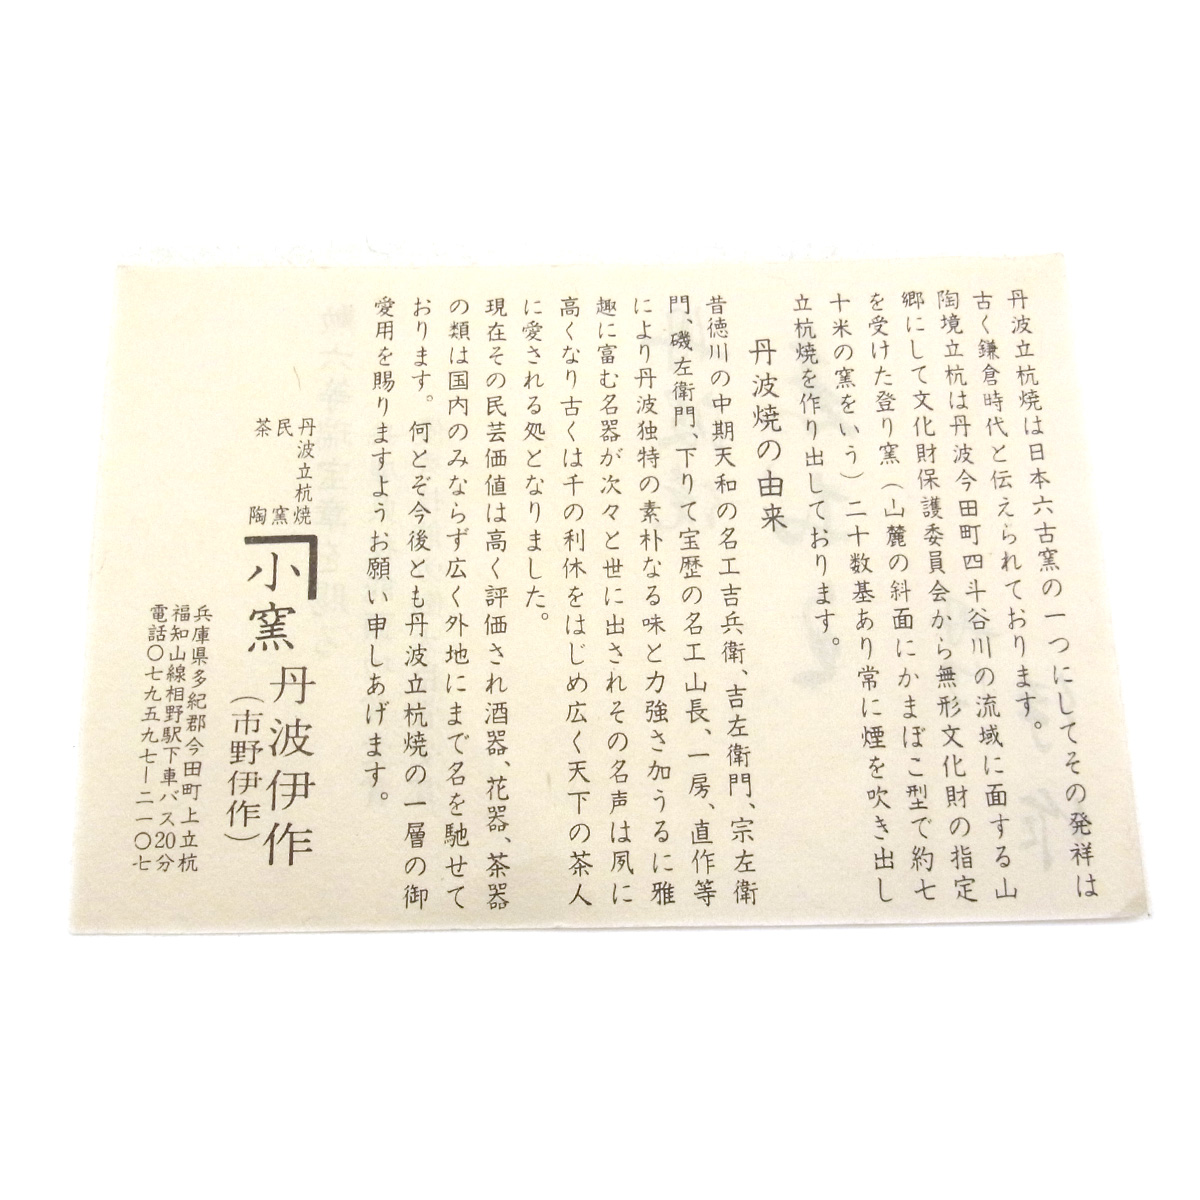 丹波立杭焼は日本六古窯の一つにしてその発祥は
古く鎌倉時代と伝えられております。
陶境立杭は丹波今田町四斗谷川の流域に面する山
郷にして文化財保護委員会から無形文化財の指定
を受けた登り窯(山麓の斜面にかまぼこ型で約七
十米の窯をいう)二十数基あり常に煙を吹き出し
立杭焼を作り出しております。
丹波焼の由来
昔徳川の中期天和の名工吉兵衛、吉左衛門、宗左衛
門、磯左衛門、下りて宝歴の名工山長、一房、直作等
により丹波独特の素朴なる味と力強さ加うるに雅
趣に富む名器が次々と世に出されその名声は夙に
高くなり古くは千の利休をはじめ広く天下の茶人
に愛される処となりました。
現在その民芸価値は高く評価され酒器、花器、茶器
の類は国内のみならず広く外地にまで名を馳せて
おります。何とぞ今後とも丹波立杭焼の一層の御
愛用を賜りますようお願い申しあげます。
丹波立杭焼
民窯
茶陶
小窯
丹波伊作
(市野伊作)
兵庫県多紀郡今田町上立杭
福知山線相野駅下車バス20分
電話〇七九五九七ー二一〇七